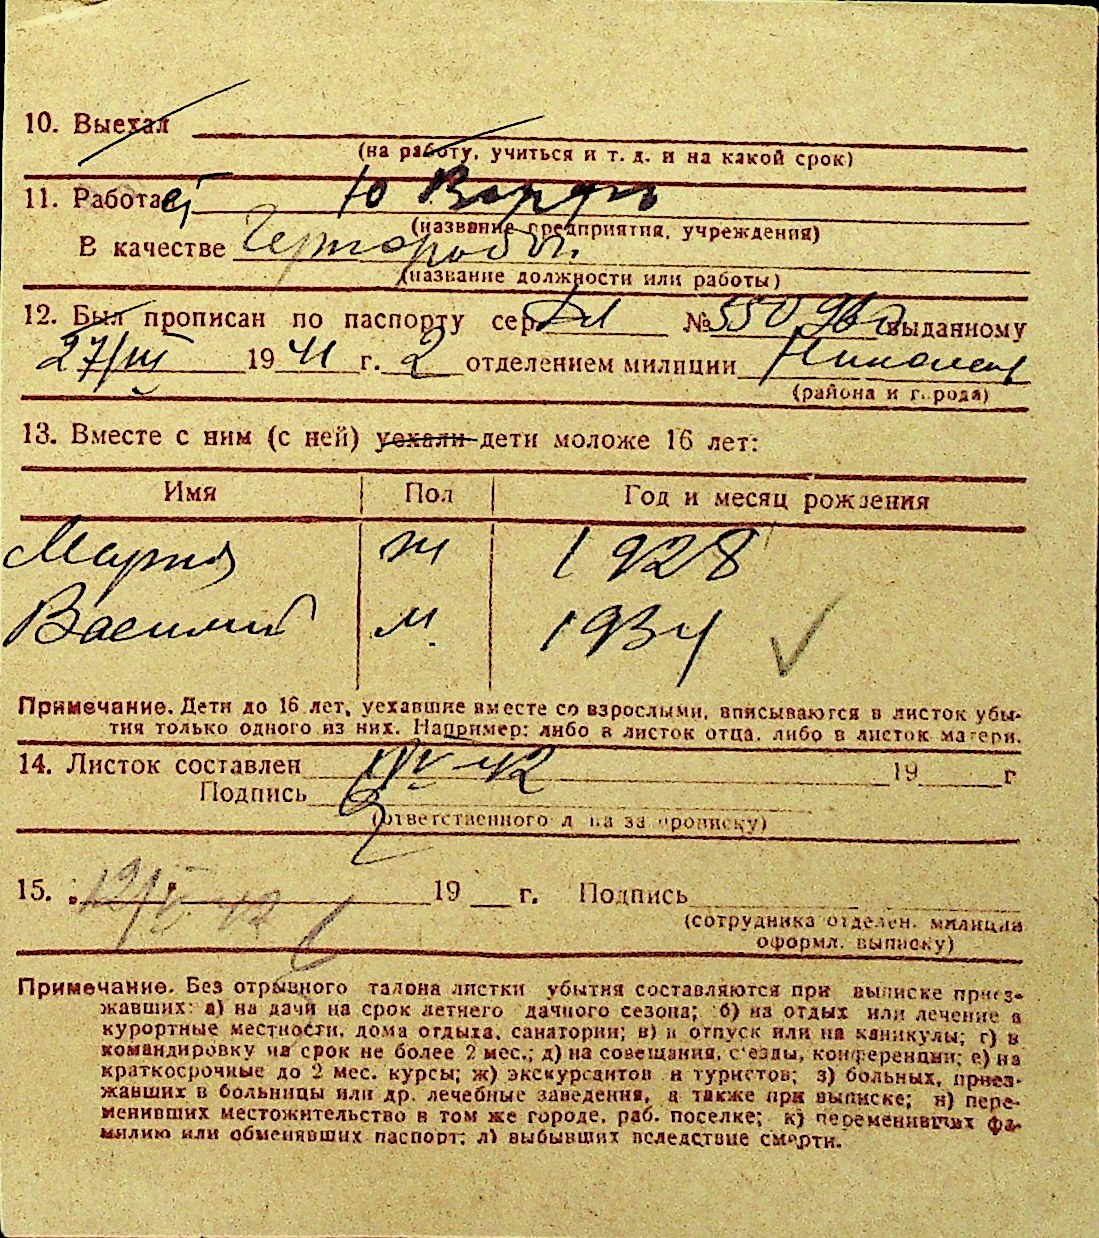 10. Выехал
(на работу, учиться и т. д. и на какой срок)
11. Работает
(название предприятия, учреждения)
В качестве Чернораб.
(название должности или работы)
12. Был прописан по паспорту сер. № 550960 выданному
27/III 19 41 г. 2 отделением милиции
(района и города)
13. Вместе с ним (с ней) уехали дети моложе 16 лет:
Имя Пол Год и месяц рождения
Мария ж 1928
Василий м. 1934
Примечание. Дети до 16 лет, уехавшие вместе со взрослыми, вписываются в листок убы-
тия только одного из них. Например: либо в листок отца, либо в листок матери.
14. Листок составлен 19 г
Подпись
(ответственного за прописку)
15. 12/V-42 19 г. Подпись
(сотрудника отделен. милиции
оформл. выписку)
Примечание. Без отрывного талона листки убытия составляются при выписке приез-
жавших: а) на дачи на срок летнего дачного сезона; б) на отдых или лечение в
курортные местности, дома отдыха, санатории; в) в отпуск или на каникулы; г) в
командировку на срок не более 2 мес.; д) на совещания, с'езды, конференции; е) на
краткосрочные до 2 мес. курсы; ж) экскурсантов и туристов; з) больных, приез-
жавших в больницы или др. лечебные заведения, а также при выписке; и) пере-
менивших местожительство в том же городе, раб. поселке; к) переменивших фа-
милию или обменявших паспорт; л) выбывших вследствие смерти.